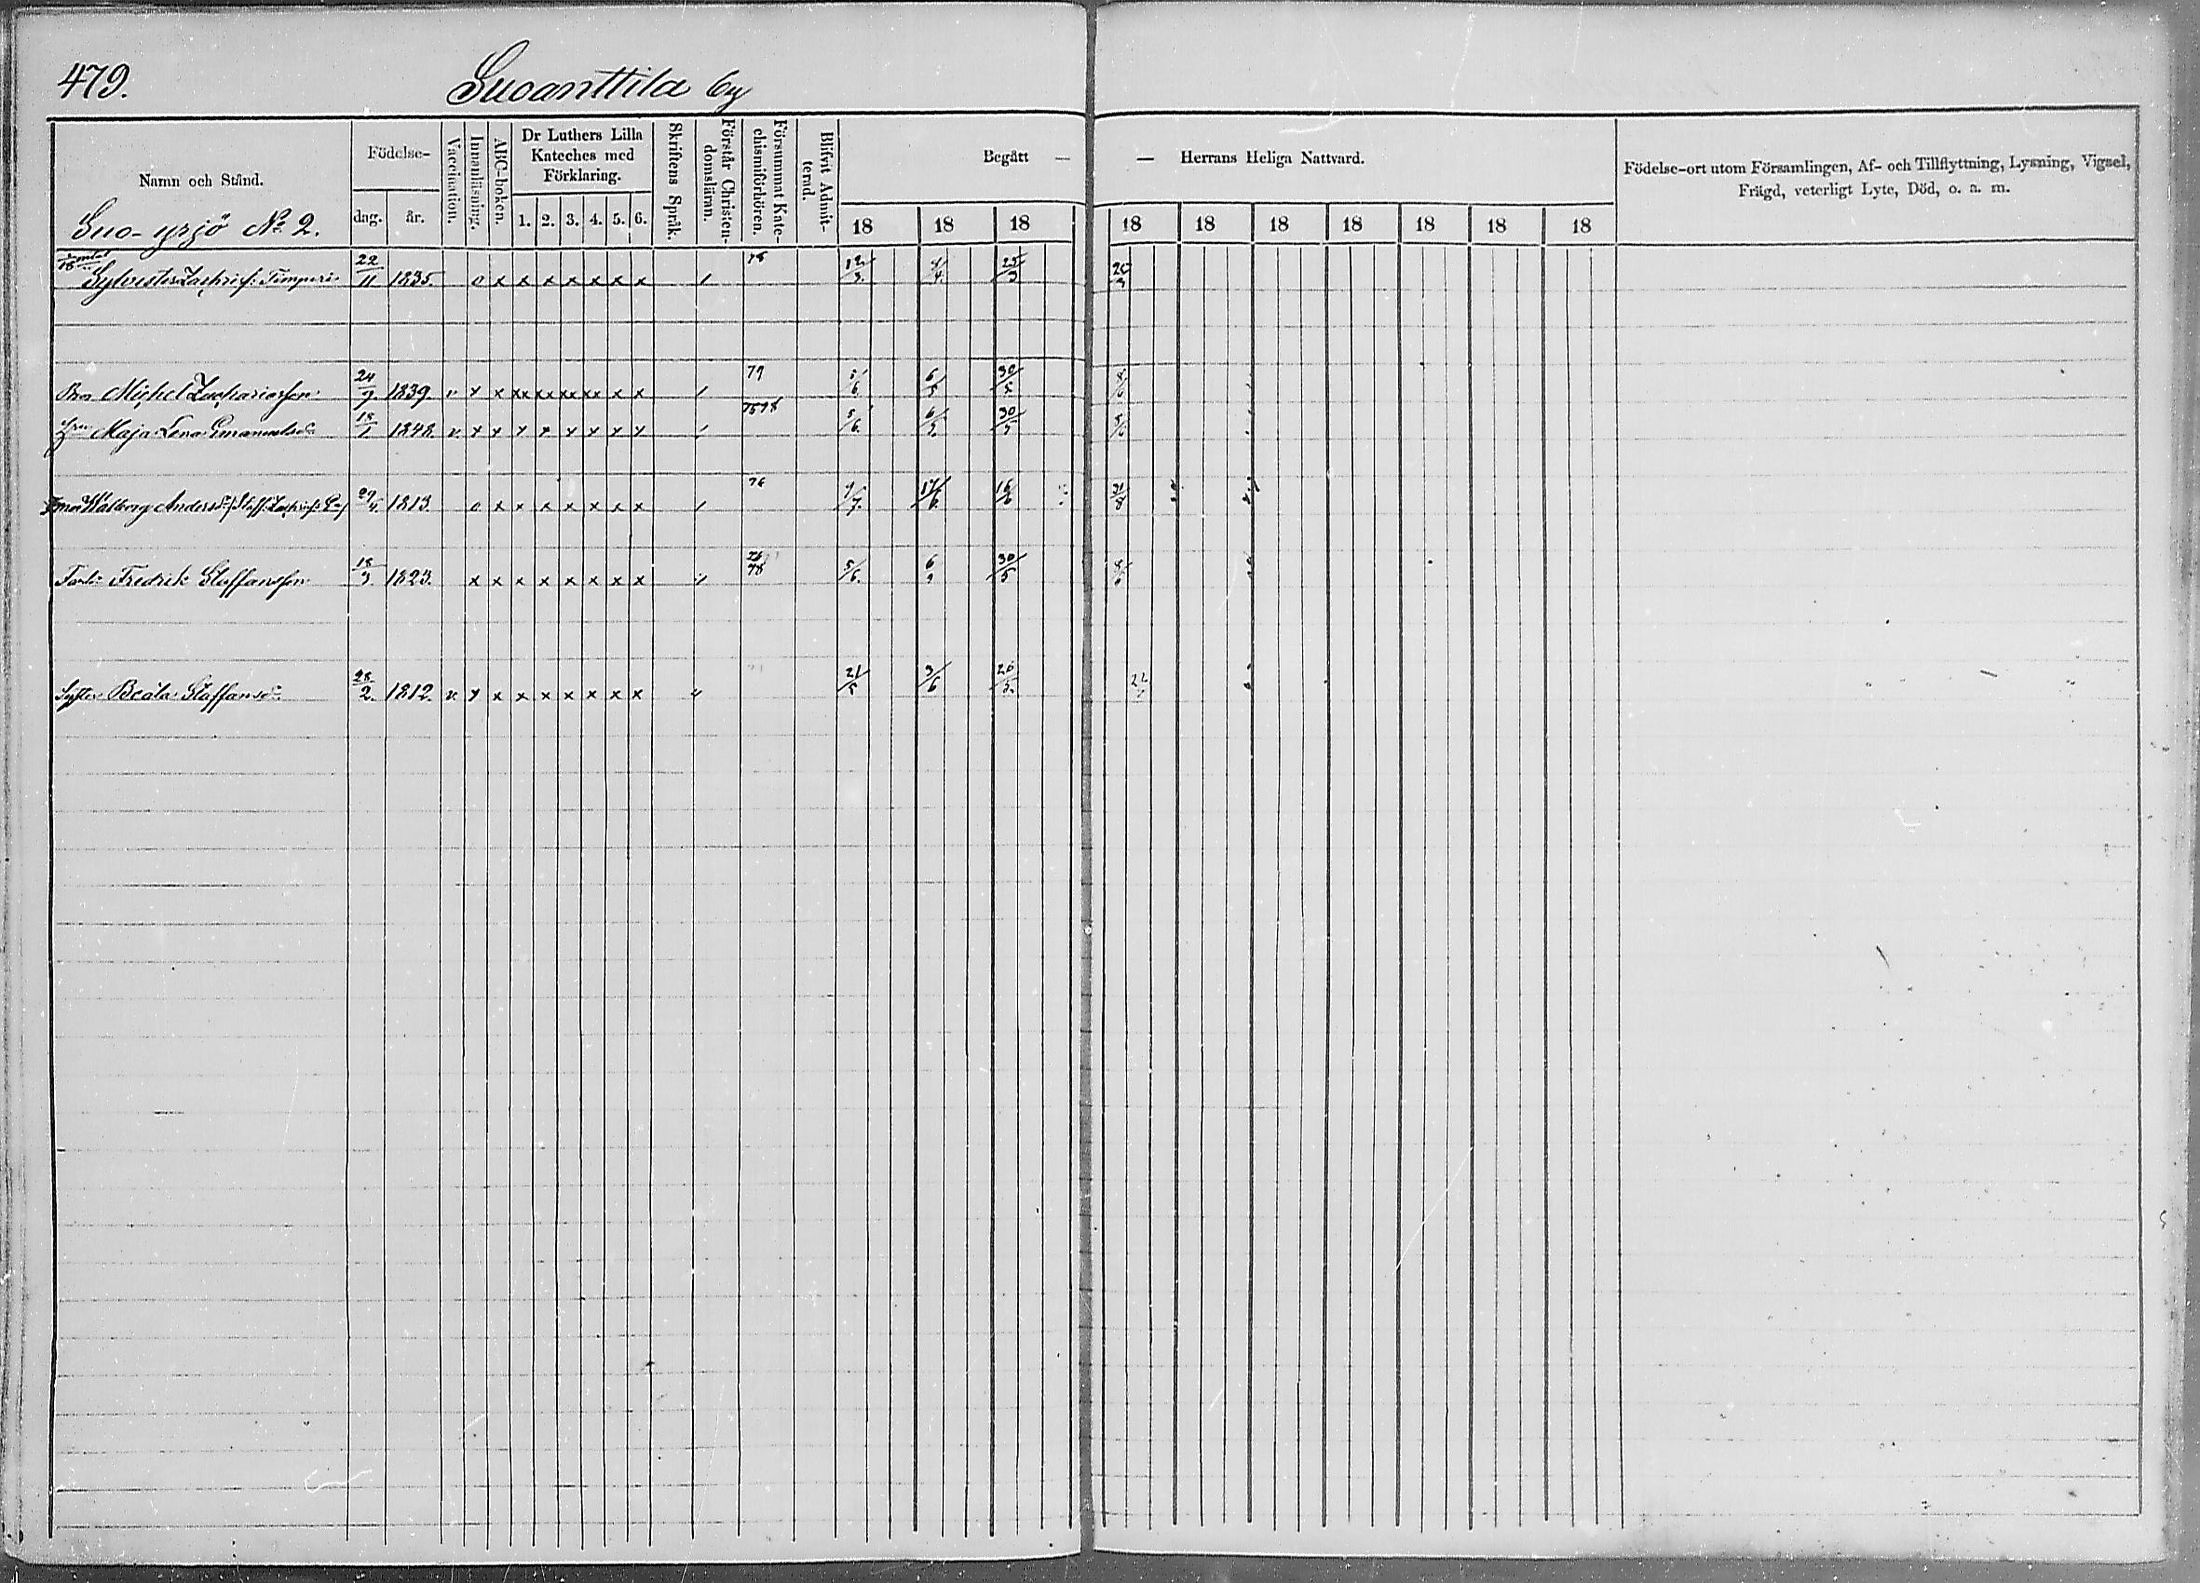 479.
Suoanttila by
Namn och Stånd.
Födelse-
dag. år.
Vaccination.
Innanläsning.
ABC-boken.
Dr Luthers Lilla
Kateches med
Förklaring.
1. 2. 3. 4. 5. 6.
Skriftens Språk.
Förstår Christen-
domsläran.
Försummat Kate-
chismiförhören.
Blifvit Admit-
terad.
Begått — — Herrans Heliga Nattvard.
18 18 18 18 18 18 18 18 18 18
Födelse-ort utom Församlingen, Af- och Tillflyttning, Lysning, Vigsel,
Frägd, veterligt Lyte, Död, o. a. m.
Suo-yrjö No 2.
Sylvester Zachrisf: Timperi 22/11 1835. o x x x x x x x / 78 12/3. 4/4. 25/3
Bror Michel Zachariasson 24/9 1839 v x x xx xx xx xx x x / 79 5/6. 6/5 30/5
Hu Maja Lena Emanuelsdr 18/1 1848 v x x x x x x x x / 75 78 5/6. 6/5. 30/5
Walborg Andersdr 29/4. 1813. o x x x x x x x / 76 17/6. 16/6 31/8
Farbr Fredrik Staffansson 18/3. 1823. x x x x x x x x 76 78 5/6. 30/5
Syster Beata Staffansdr 28/2. 1812. v x x x x x x x x 21/5 3/6